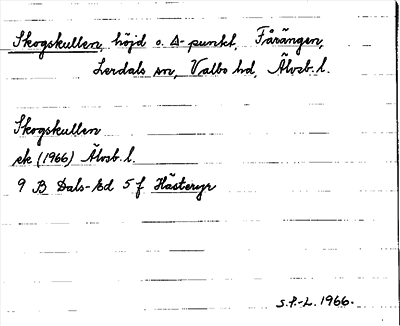 Skogskullen, höjd o. Δ-punkt, Fårängen,
Lerdals sn, Valbo hd, Älvsb. l.
Skogskullen
ek (1966) Älvsb. l.
9 B Dals-Ed 5 f Hästeryr
S.F.-L. 1966.